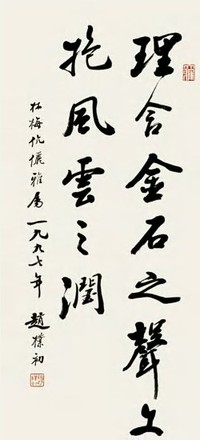 理含金石之聲文
抱風雲之潤
林梅伉儷雅屬 一九九七年 趙樸初